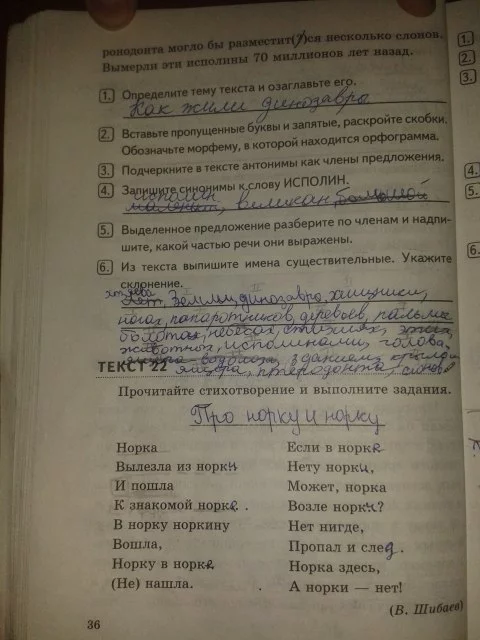 ронодонта могло бы разместит(?)ся несколько слонов.
Вымерли эти исполины 70 миллионов лет назад.
1. Определите тему текста и озаглавьте его.
Как жили динозавры
2. Вставьте пропущенные буквы и запятые, раскройте скобки.
Обозначьте морфему, в которой находится орфограмма.
3. Подчеркните в тексте антонимы как члены предложения.
4. Запишите синонимы к слову ИСПОЛИН.
исполин
великан, большой
5. Выделенное предложение разберите по членам и надпи-
шите, какой частью речи они выражены.
6. Из текста выпишите имена существительные. Укажите
склонение.
Земли, динозавры, хищники,
ногах, папоротников, деревьев, пальмы
болотах, небесах, стихиях,
животных, исполинами, голова,
зданием, крылья
ТЕКСТ 22
ящера, птеродонта, слонов
Прочитайте стихотворение и выполните задания.
Про норку и норку
Норка
Вылезла из норки
И пошла
К знакомой норке.
В норку норкину
Вошла,
Норку в норке
(Не) нашла.
Если в норке
Нету норки,
Может, норка
Возле норки?
Нет нигде,
Пропал и след.
Норка здесь,
А норки — нет!
(В. Шибаев)
36
1.
2.
3.
4.
5.
6.